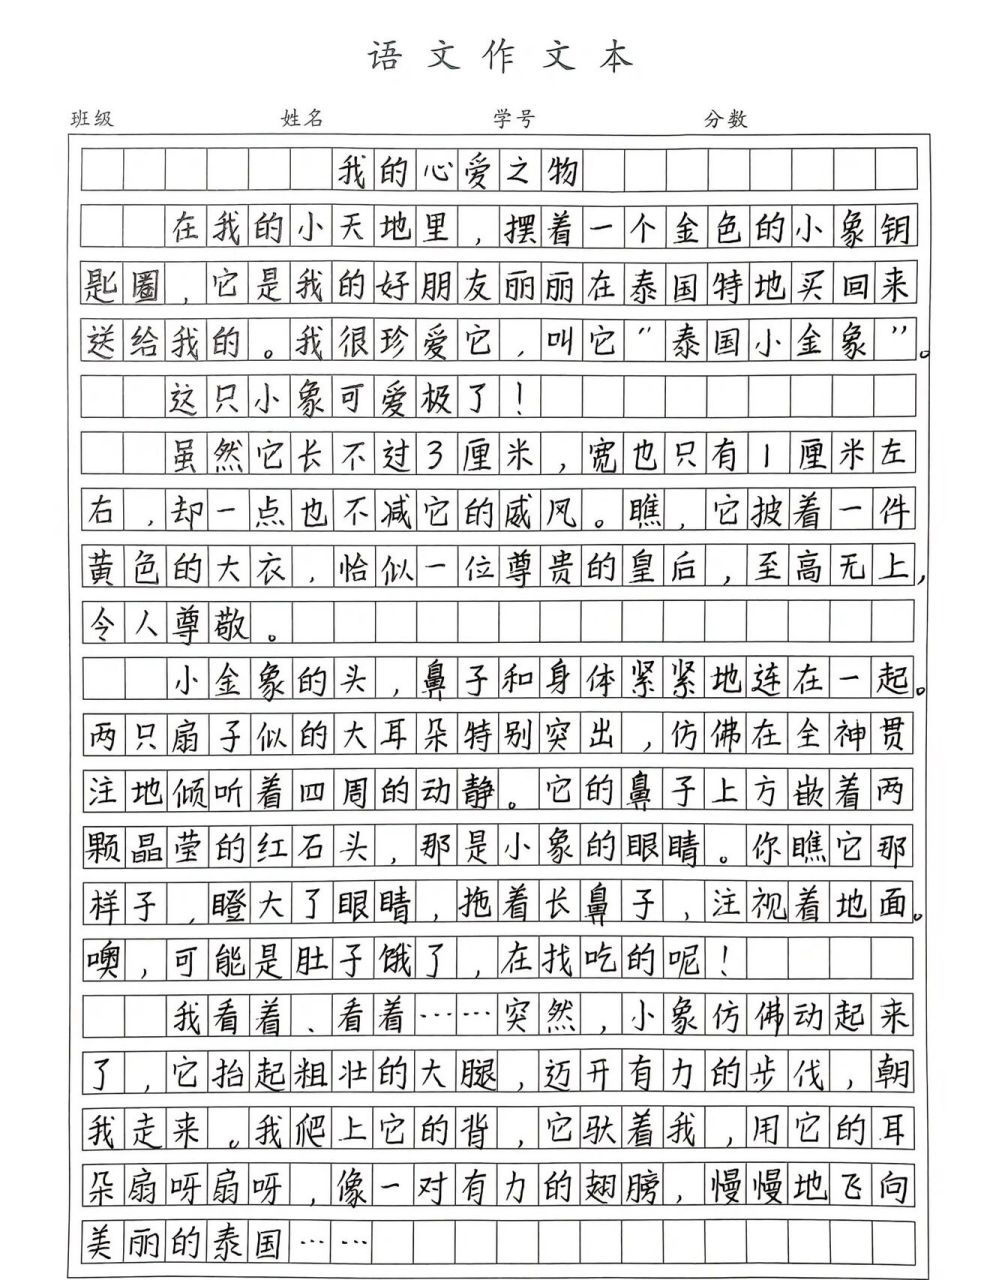 语文作文本
班级 姓名 学号 分数
我的心爱之物
在我的小天地里，摆着一个金色的小象钥
匙圈，它是我的好朋友丽丽在泰国特地买回来
送给我的。我很珍爱它，叫它“泰国小金象”。
这只小象可爱极了！
虽然它长不过3厘米，宽也只有1厘米左
右，却一点也不减它的威风。瞧，它披着一件
黄色的大衣，恰似一位尊贵的皇后，至高无上，
令人尊敬。
小金象的头，鼻子和身体紧紧地连在一起。
两只扇子似的大耳朵特别突出，仿佛在全神贯
注地倾听着四周的动静。它的鼻子上方嵌着两
颗晶莹的红石头，那是小象的眼睛。你瞧它那
样子，瞪大了眼睛，拖着长鼻子，注视着地面。
噢，可能是肚子饿了，在找吃的呢！
我看着、看着……突然，小象仿佛动起来
了，它抬起粗壮的大腿，迈开有力的步伐，朝
我走来。我爬上它的背，它驮着我，用它的耳
朵扇呀扇呀，像一对有力的翅膀，慢慢地飞向
美丽的泰国……